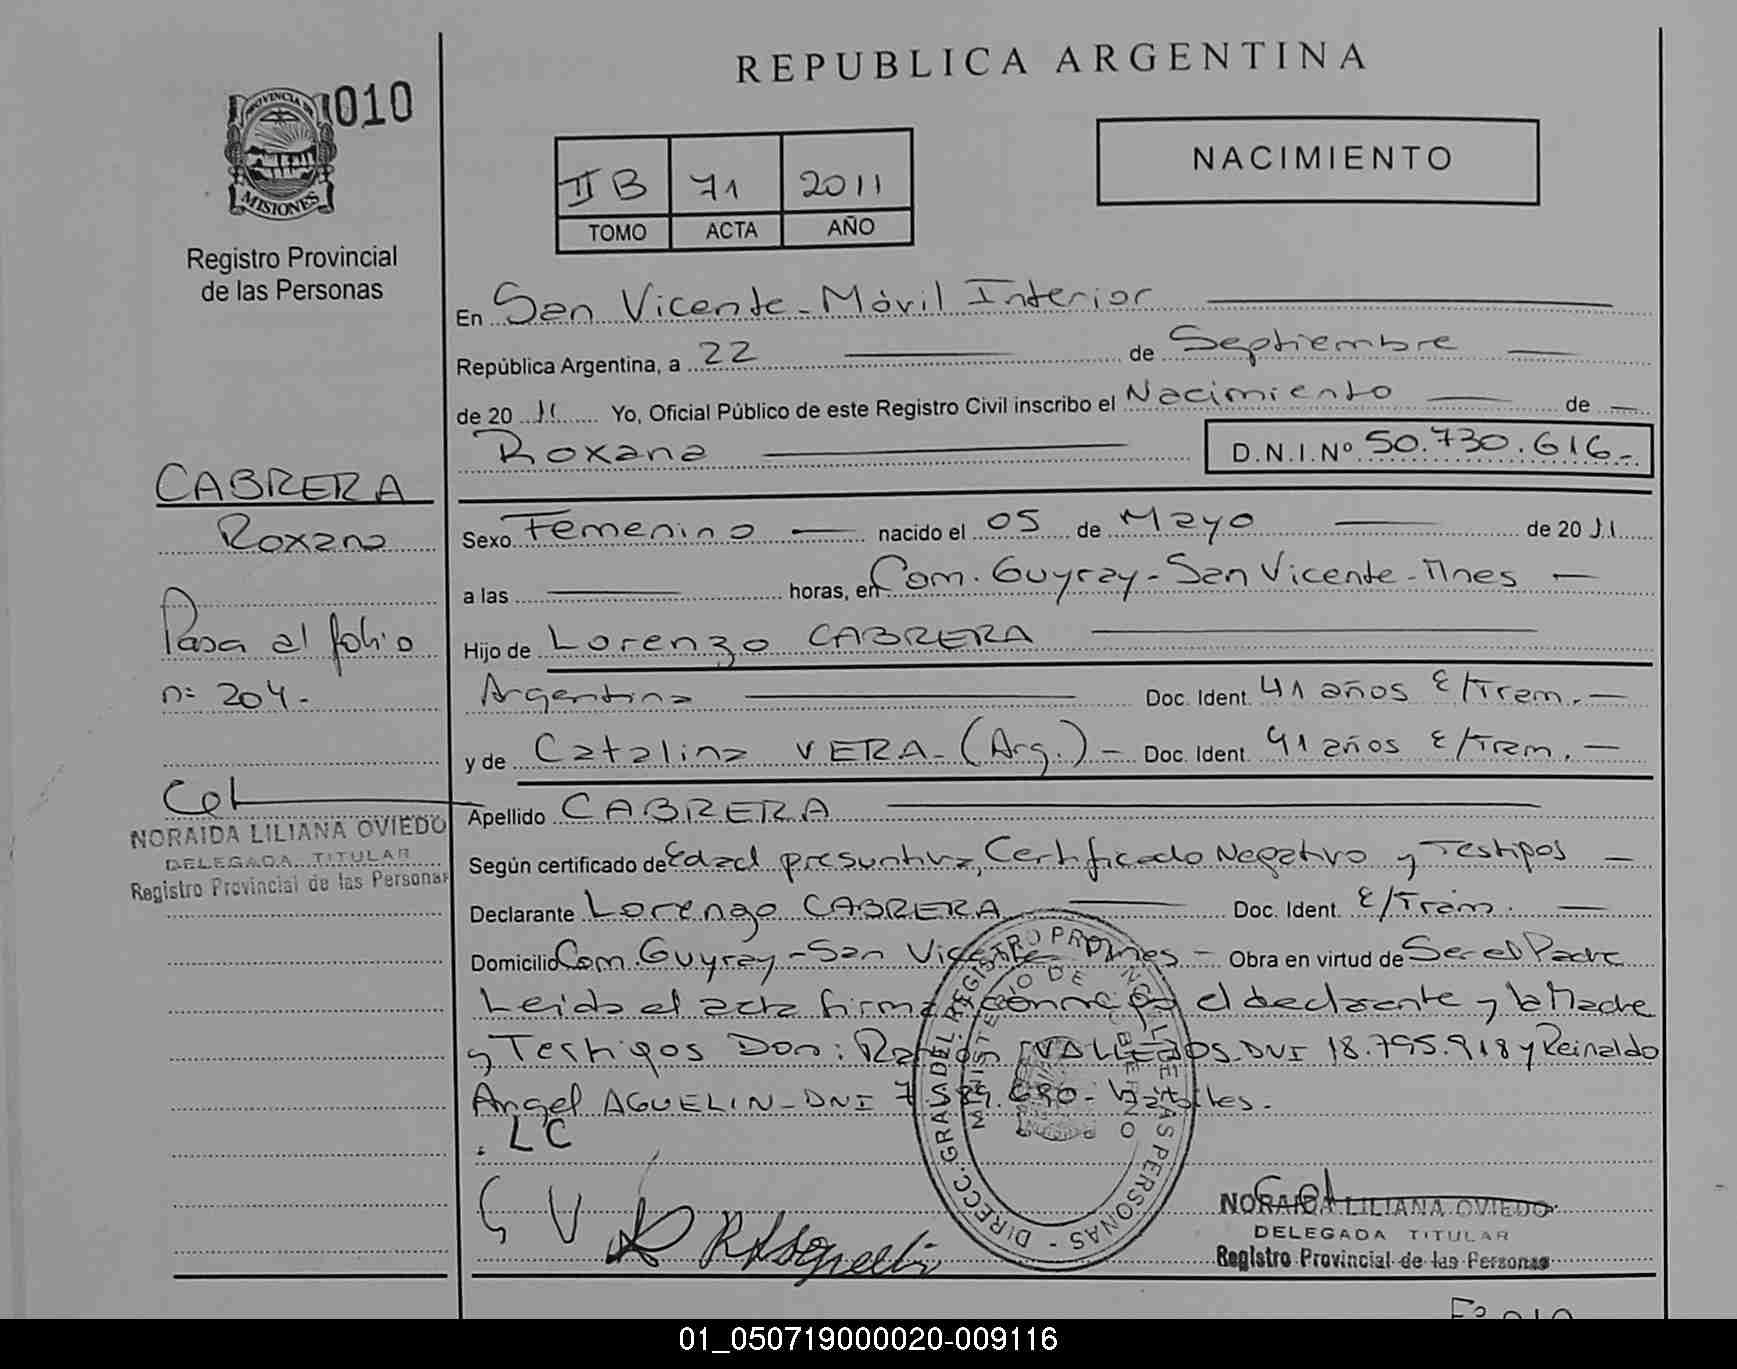 REPUBLICA ARGENTINA
010
PROVINCIA DE
MISIONES
Registro Provincial
de las Personas
II B 71 2011
TOMO ACTA AÑO
NACIMIENTO
En San Vicente - Móvil Interior
República Argentina, a 22 de Septiembre
de 20 11 Yo, Oficial Público de este Registro Civil inscribo el Nacimiento de
Roxana D.N.I.Nº 50.730.616.-
CABRERA
Roxana
Pasa al folio
nº 204.-
NORAIDA LILIANA OVIEDO
DELEGADA TITULAR
Registro Provincial de las Personas
Sexo Femenino nacido el 05 de Mayo de 20 11
a las horas, en Com. Guyray - San Vicente - Mnes
Hijo de Lorenzo CABRERA
Argentina Doc. Ident. 41 años E/Tram.
y de Catalina VERA - (Arg.) - Doc. Ident. 41 años E/Tram.
Apellido CABRERA
Según certificado de Edad presuntiva, Certificado Negativo y Testigos
Declarante Lorenzo CABRERA Doc. Ident. E/Trám.
Domicilio Com. Guyray - San Vicente Mnes - Obra en virtud de Ser el Padre
Leida el acta firma conmigo el declarante y la Madre
y Testigos Don: Ramón VALLEJOS DNI 18.795.918 y Reinaldo
Angel AGUELIN - DNI
. LC
C V
DIRECC. GRAL. DEL REGISTRO PROVINCIAL DE LAS PERSONAS -
MINISTERIO DE GOBIERNO
NORAIDA LILIANA OVIEDO
DELEGADA TITULAR
Registro Provincial de las Personas
01_050719000020-009116